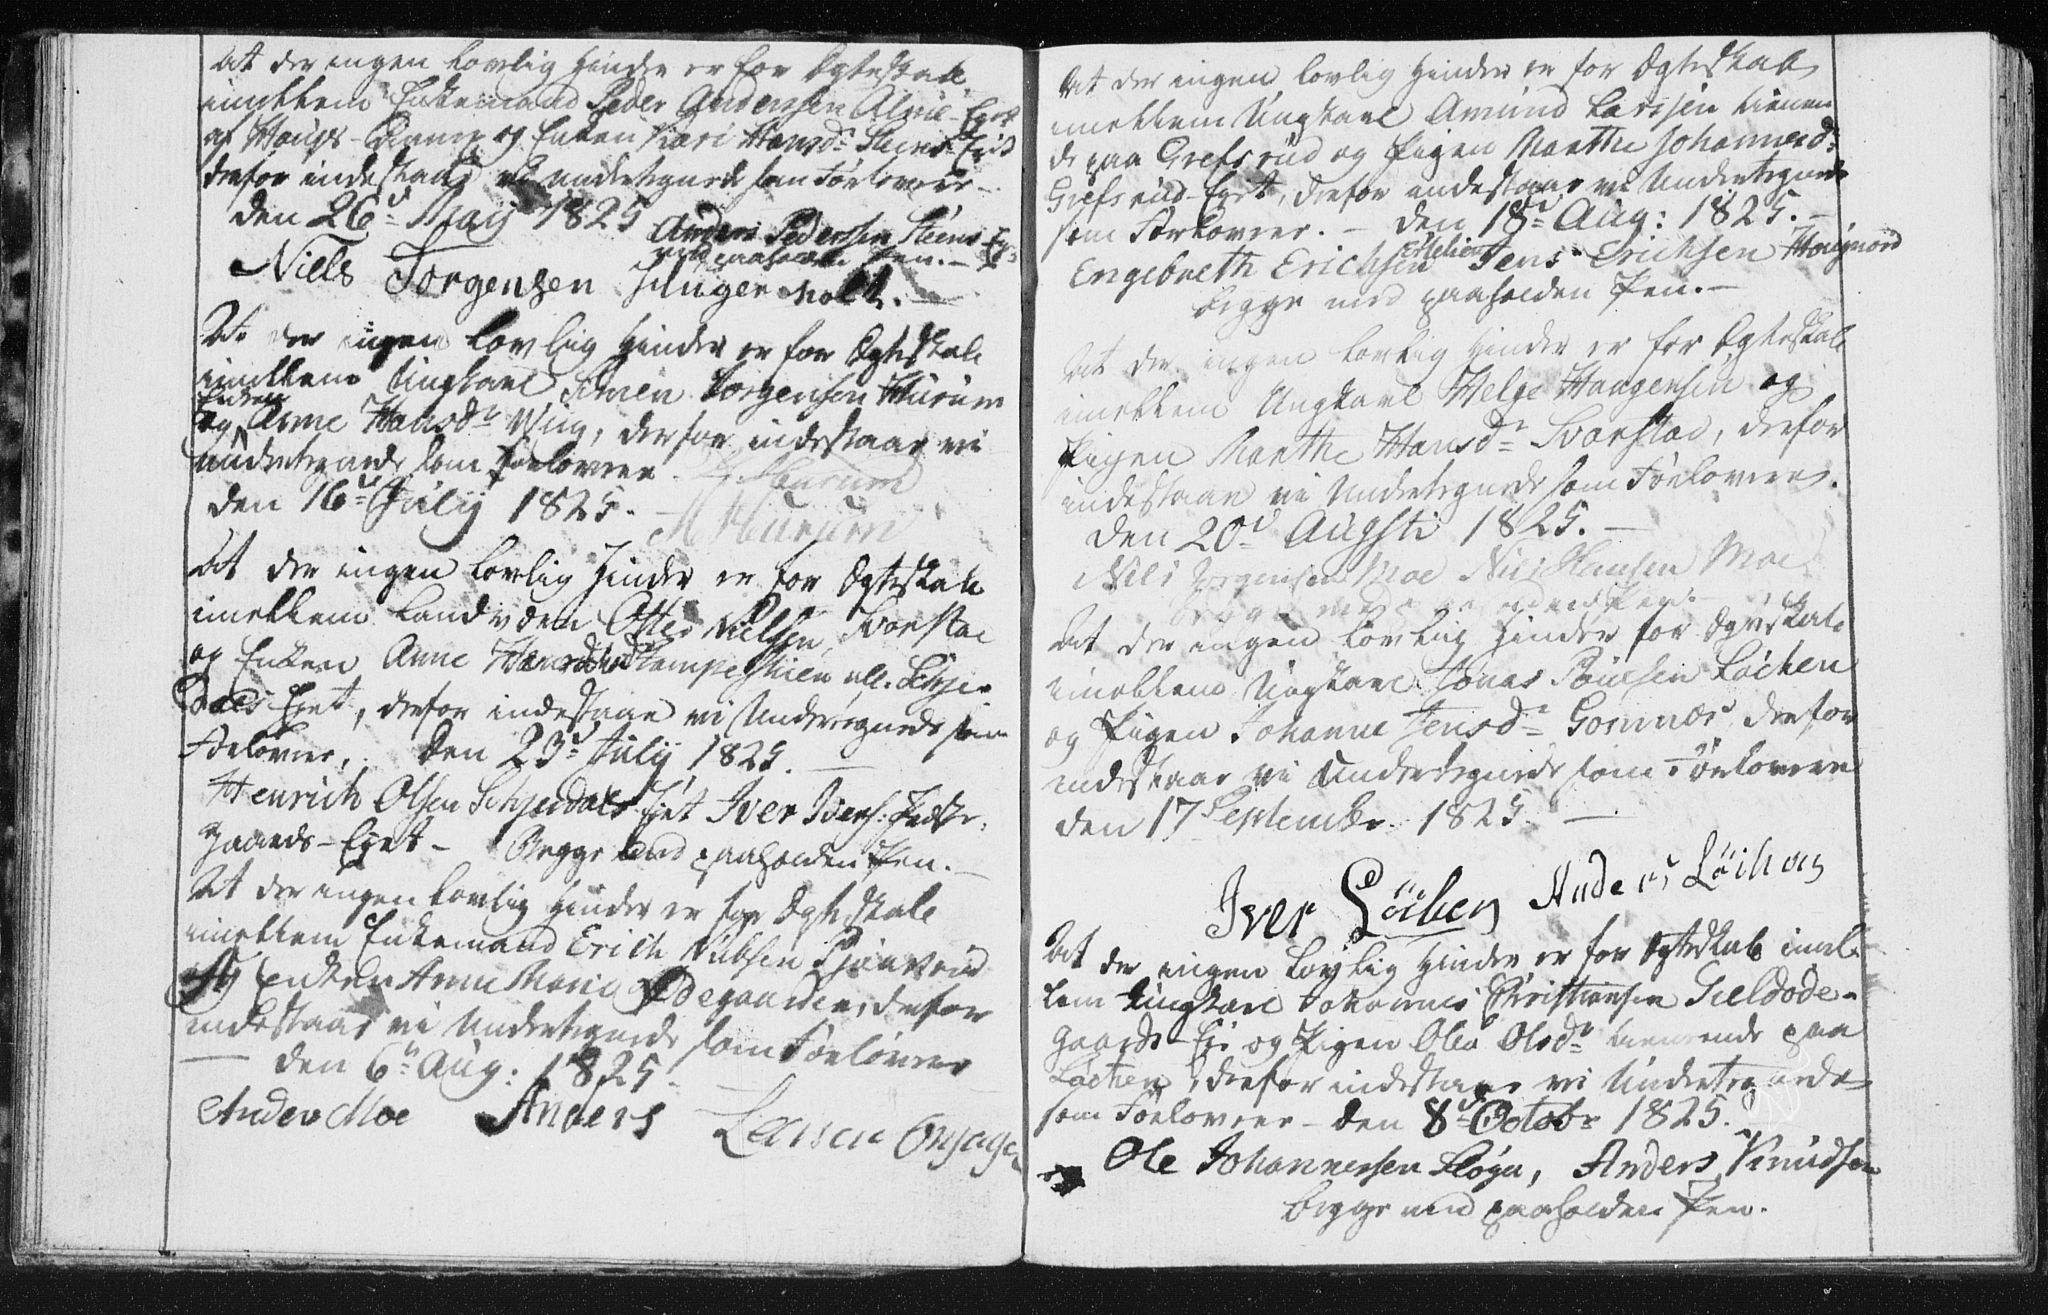 At der ingen lovlig Hinder er for Ægteskab
imellem Enkemand Peder Anderssen Alme-Eyet
af Haugs- og Enken Kari Hansd: Steens Eyet
derfor indestaaer vi undertegnede som Forlovere.
den 26d May 1825 Anders Pedersen Steens Ey:
med paaholden Pen.
Niels Torgensen
At der ingen lovlig Hinder er for Ægteskab
imellem Ungkarl Simen Torgensen Hurum
Enken
og Anne Hansdr Wiig, derfor indestaar vi
undertegnede som Forlovere. Hurum
den 16d July 1825. Hurum
At der ingen lovlig Hinder er for Ægteskab
imellem Landvden Otter Nielsen Svarstad
og Enken Anne Hansd Kampeskien ell. Schje-
dals Eyet, derfor indestaar vi Undertegnede som
Forlovere, den 23d July 1825.
Henrich Olsen Schjedals Eyet Iver Ivers:
gaards-Eyet - Begge med paaholden Pen.
At der ingen lovlig Hinder er for Ægteskab
imellem Enkemand Erich Nielsen
og Enken Anne Marie Ødegaarden, derfor
indestaar vi Undertegnede som Forlovere
den 6te Aug: 1825.
Anders Moe Anders Larsen
At der ingen lovlig Hinder er for Ægteskab
imellem Ungkarl Amund Larssen tienen
de paa Grefsrud og Pigen Marthe Johannesd:
Grefsrud-Eyet, derfor indestaar vi Undertegnede
som Forlovere. - den 18d Aug: 1825.
Engebreth Erichsen Melien Jens Erichsen Haugnord
begge med paaholden Pen.
At der ingen lovlig Hinder er for Ægteskab
imellem Ungkarl Helge Haagensen og
Pigen Marthe Hansdr Svarstad, derfor
indestaar vi Undertegnede som Forlovere.
den 20d Augsti 1825.
Niels Torgensen Moe Niels Hansen Moe
begge med paaholden Pen.
At der ingen lovlig Hinder for Ægteskab
imellem Ungkarl Jonas Poulsen Løchen
og Pigen Johanne Jensdr Gosmær derfor
indestaar vi Undertegnede som Forlovere
den 17 Septembr. 1825.
Iver Löchen Anders Löchen
At der ingen Lovlig Hinder er for Ægteskab imel-
lem Ungkarl Johannes Christiansen Sieldode-
gaards-Eje og Pigen Olea Olsdr tienende paa
Løchen, derfor indestaar vi Undertegnede
som Forlovere - den 8d Octobr 1825.
Ole Johannersen Fløgn, Anders Knudsen
begge med paaholden Pen.